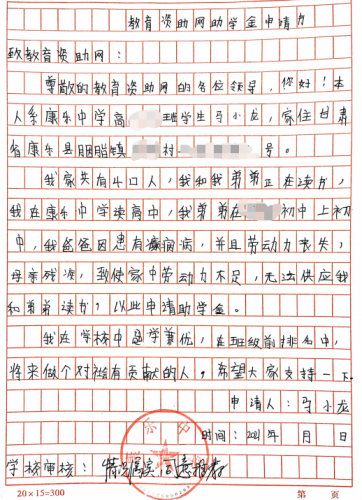 教育资助网助学金申请书
致教育资助网：
尊敬的教育资助网的各位领导，你好！本
人系康乐中学高 班学生马小龙，家住甘肃
省康乐县胭脂镇 村 号。
我家共有4口人，我和我弟弟正在读书，
我在康乐中学读高中，我弟弟在 初中上初
中，我爸爸因患有癫痫病，并且劳动力丧失，
母亲残凉，致使家中劳动力不足，无法供应我
和弟弟读书，以此申请助学金。
我在学校中品学兼优，在班级前排名中，
将来做个对社会有贡献的人，希望大家支持一下。
申请人：马小龙
时间：2021年 月 日
学校审核： 情况属实 同意推荐
20×15=300 第 页